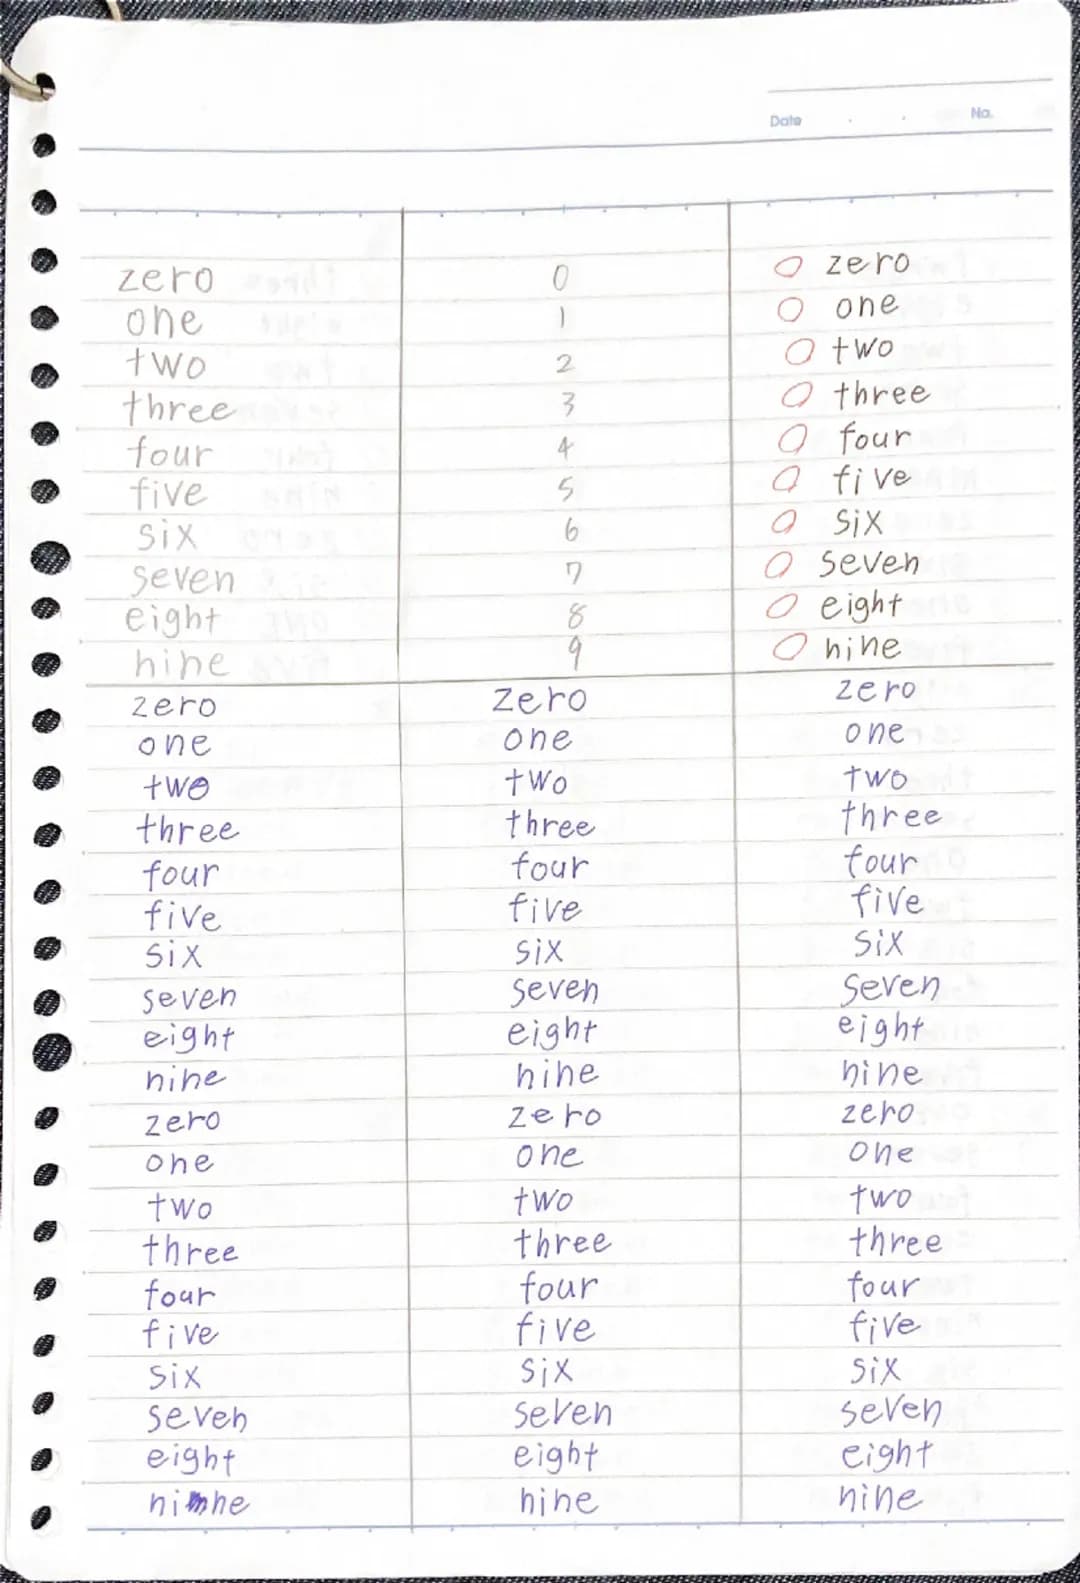 Date . . No.
zero 0 zero
one 1 one
two 2 two
three 3 three
four 4 four
five 5 five
six 6 six
seven 7 seven
eight 8 eight
nine 9 nine
zero zero zero
one one one
two two two
three three three
four four four
five five five
six six six
seven seven seven
eight eight eight
nine nine nine
zero zero zero
one one one
two two two
three three three
four four four
five five five
six six six
seven seven seven
eight eight eight
nine nine